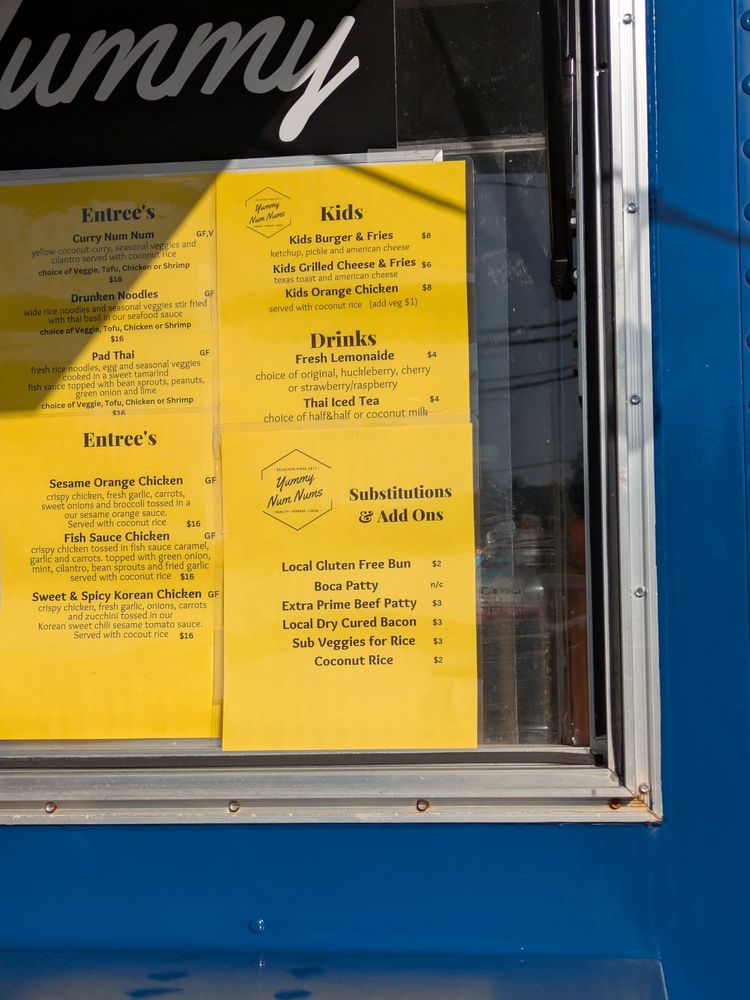 Yummy
Entree's
Curry Num Num GF,V
yellow coconut curry, seasonal veggies and
cilantro served with coconut rice
choice of Veggie, Tofu, Chicken or Shrimp
$16
Drunken Noodles GF
wide rice noodles and seasonal veggies stir fried
with thai basil in our seafood sauce
choice of Veggie, Tofu, Chicken or Shrimp
$16
Pad Thai GF
fresh rice noodles, egg and seasonal veggies
cooked in a sweet tamarind
fish sauce topped with bean sprouts, peanuts,
green onion and lime
choice of Veggie, Tofu, Chicken or Shrimp
$16
Entree's
Sesame Orange Chicken GF
crispy chicken, fresh garlic, carrots,
sweet onions and broccoli tossed in a
our sesame orange sauce.
Served with coconut rice $16
Fish Sauce Chicken GF
crispy chicken tossed in fish sauce caramel,
garlic and carrots. topped with green onion,
mint, cilantro, bean sprouts and fried garlic
served with coconut rice $16
Sweet & Spicy Korean Chicken GF
crispy chicken, fresh garlic, onions, carrots
and zucchini tossed in our
Korean sweet chili sesame tomato sauce.
Served with cocout rice $16
Yummy
Num Nums
Kids
Kids Burger & Fries $8
ketchup, pickle and american cheese
Kids Grilled Cheese & Fries $6
texas toast and american cheese
Kids Orange Chicken $8
served with coconut rice (add veg $1)
Drinks
Fresh Lemonaide $4
choice of original, huckleberry, cherry
or strawberry/raspberry
Thai Iced Tea $4
choice of half&half or coconut milk
• DELICIOUS SINCE 2017 •
Yummy
Num Nums
QUALITY • DIVERSE • LOCAL
Substitutions
& Add Ons
Local Gluten Free Bun $2
Boca Patty n/c
Extra Prime Beef Patty $3
Local Dry Cured Bacon $3
Sub Veggies for Rice $3
Coconut Rice $2